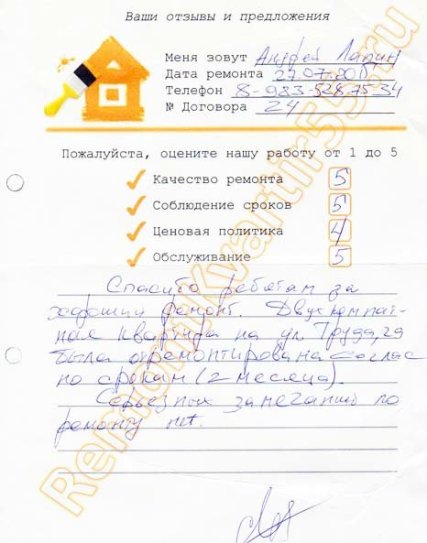 Ваши отзывы и предложения
Меня зовут Андрей Лапин
Дата ремонта 27.07.201
Телефон 8-983-528-75-34
№ Договора 24
Пожалуйста, оцените нашу работу от 1 до 5
Качество ремонта 5
Соблюдение сроков 5
Ценовая политика 4
Обслуживание 5
Спасибо ребятам за
хороший ремонт. Двухкомнат-
ная квартира на ул. Труда, 29
была отремонтирована соглас
но срокам (2 месяца).
Серьезных замечаний по
ремонту нет.
Remont-Kvartir55.ru